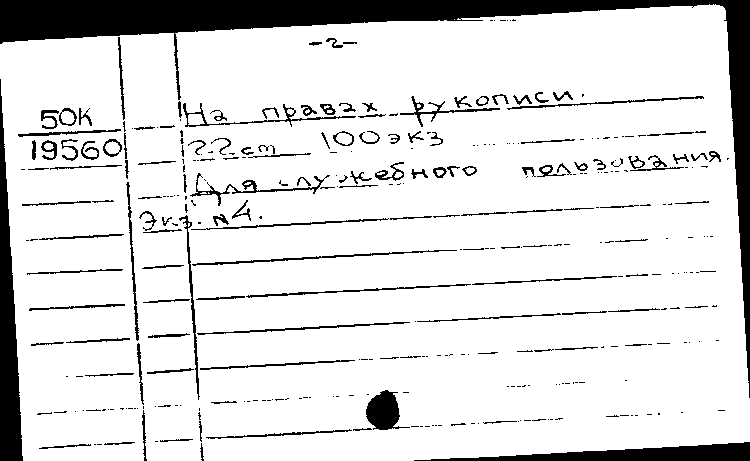 -2-
50К На правах рукописи.
19560 22см 100экз
Для служебного пользования.
Экз. №4.